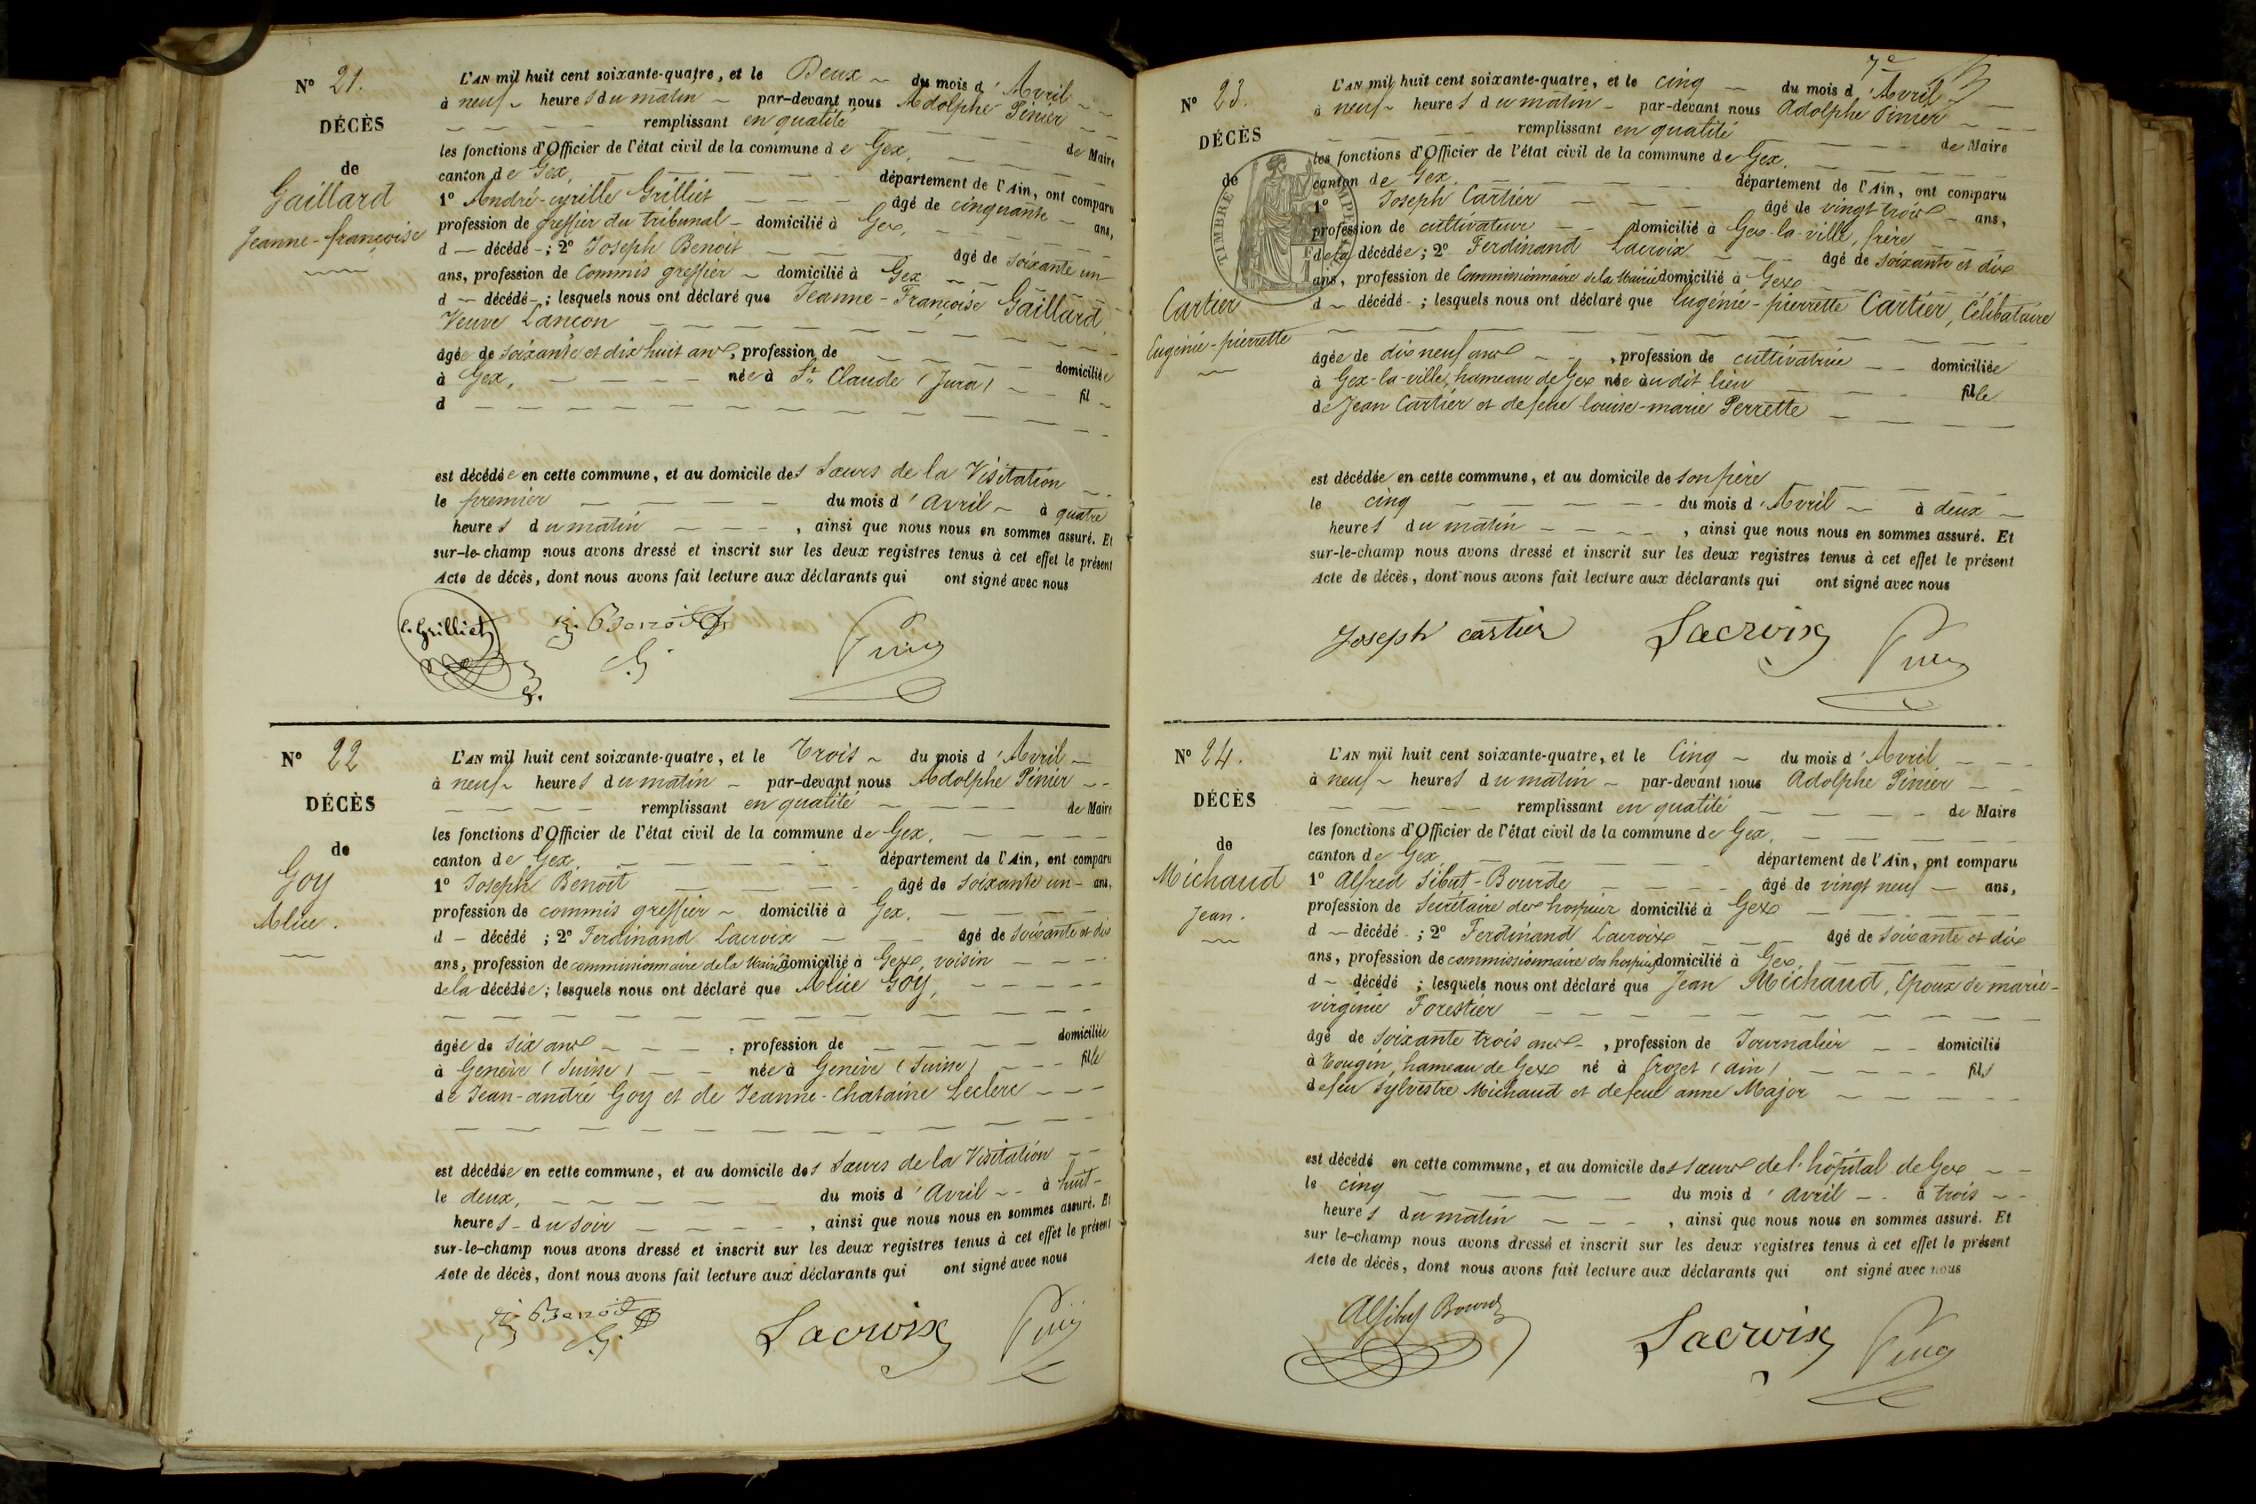 N° 21.
DÉCÈS
de
Gaillard
Jeanne-françoise
L'AN mil huit cent soixante-quatre, et le Deux du mois d'Avril
à neuf heures du matin par-devant nous Adolphe Pinier
remplissant en qualité de Maire
les fonctions d'Officier de l'état civil de la commune de Gex,
canton de Gex, département de l'Ain, ont comparu
1° André-cyrille Grilliet âgé de cinquante ans,
profession de greffier du tribunal domicilié à Gex,
d décédé ; 2° Joseph Benoit âgé de soixante un
ans, profession de commis greffier domicilié à Gex
d décédé ; lesquels nous ont déclaré que Jeanne-Françoise Gaillard,
Veuve Lançon
âgée de soixante et dix huit ans, profession de domiciliée
à Gex, née à St Claude (Jura) fil
d
est décédée en cette commune, et au domicile des Sœurs de la Visitation
le premier du mois d'avril à quatre
heures du matin, ainsi que nous nous en sommes assuré. Et
sur-le-champ nous avons dressé et inscrit sur les deux registres tenus à cet effet le présent
Acte de décès, dont nous avons fait lecture aux déclarants qui ont signé avec nous
c. Grilliet J. Benoit Pinier
N° 22
DÉCÈS
de
Goy
Alice.
L'AN mil huit cent soixante-quatre, et le Trois du mois d'Avril
à neuf heures du matin par-devant nous Adolphe Pinier
remplissant en qualité de Maire
les fonctions d'Officier de l'état civil de la commune de Gex,
canton de Gex, département de l'Ain, ont comparu
1° Joseph Benoit âgé de soixante un ans,
profession de commis greffier domicilié à Gex,
d décédé ; 2° Ferdinand Lacroix âgé de soixante et dix
ans, profession de commissionnaire de la Mairie domicilié à Gex, voisin
de la décédée ; lesquels nous ont déclaré que Alice Goy,
âgée de six ans, profession de domiciliée
à Genève (Suisse) née à Genève (Suisse) fille
de Jean-andré Goy et de Jeanne-Chataine Leclerc
est décédée en cette commune, et au domicile des Sœurs de la Visitation
le deux, du mois d'avril à huit
heures du soir, ainsi que nous nous en sommes assuré. Et
sur-le-champ nous avons dressé et inscrit sur les deux registres tenus à cet effet le présent
Acte de décès, dont nous avons fait lecture aux déclarants qui ont signé avec nous
J. Benoit Lacroix Pinier
7e
N° 23.
DÉCÈS
de
TIMBRE IMPÉRIAL
Cartier
Eugénie-pierrette
L'AN mil huit cent soixante-quatre, et le cinq du mois d'Avril
à neuf heures du matin par-devant nous Adolphe Pinier
remplissant en qualité de Maire
les fonctions d'Officier de l'état civil de la commune de Gex,
canton de Gex, département de l'Ain, ont comparu
1° Joseph Cartier âgé de vingt trois ans,
profession de cultivateur domicilié à Gex-la-ville, frère
de la décédée ; 2° Ferdinand Lacroix âgé de soixante et dix
ans, profession de Commissionnaire de la Mairie domicilié à Gex
d décédé ; lesquels nous ont déclaré que Eugénie-pierrette Cartier, Célibataire
âgée de dix neuf ans, profession de cultivatrice domiciliée
à Gex-la-ville, hameau de Gex née au dit lieu fille
de Jean Cartier et de feue louise-marie Perrette
est décédée en cette commune, et au domicile de son père
le cinq du mois d'Avril à deux
heures du matin, ainsi que nous nous en sommes assuré. Et
sur-le-champ nous avons dressé et inscrit sur les deux registres tenus à cet effet le présent
Acte de décès, dont nous avons fait lecture aux déclarants qui ont signé avec nous
Joseph cartier Lacroix Pinier
N° 24.
DÉCÈS
de
Michaud
Jean.
L'AN mil huit cent soixante-quatre, et le Cinq du mois d'Avril
à neuf heures du matin par-devant nous Adolphe Pinier
remplissant en qualité de Maire
les fonctions d'Officier de l'état civil de la commune de Gex,
canton de Gex département de l'Ain, ont comparu
1° Alfred Sibut-Bourde âgé de vingt neuf ans,
profession de Secrétaire des hospices domicilié à Gex
d décédé ; 2° Ferdinand Lacroix âgé de soixante et dix
ans, profession de commissionnaire des hospices domicilié à Gex,
d décédé ; lesquels nous ont déclaré que Jean Michaud, Epoux de marie-
virginie Forestier
âgé de soixante trois ans, profession de Journalier domicilié
à Tougin, hameau de Gex né à Crozet (ain) fils
de feu Sylvestre Michaud et de feue anne Major
est décédé en cette commune, et au domicile des sœurs de l'hôpital de Gex
le cinq du mois d'avril à trois
heures du matin, ainsi que nous nous en sommes assuré. Et
sur-le-champ nous avons dressé et inscrit sur les deux registres tenus à cet effet le présent
Acte de décès, dont nous avons fait lecture aux déclarants qui ont signé avec nous
Alf Sibut Bourde Lacroix Pinier